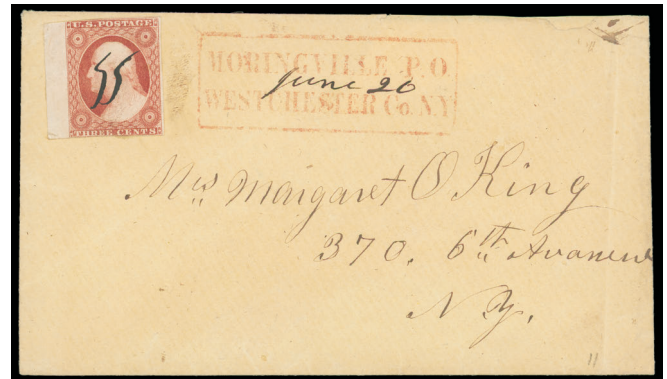 U.S. POSTAGE
THREE CENTS
MORINGVILLE P.O
June 26
WESTCHESTER Co. N.Y
Mrs Margaret O King
370. 6th Avanew
N.Y.